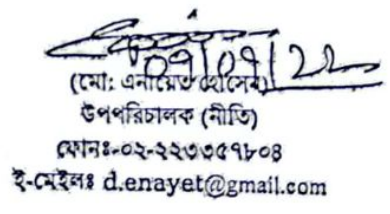 ০৭/০৭/২২
(মো: এনায়েত হোসেন)
উপপরিচালক (নীতি)
ফোনঃ-০২-২২৩৩৫৭৮০৪
ই-মেইলঃ d.enayet@gmail.com